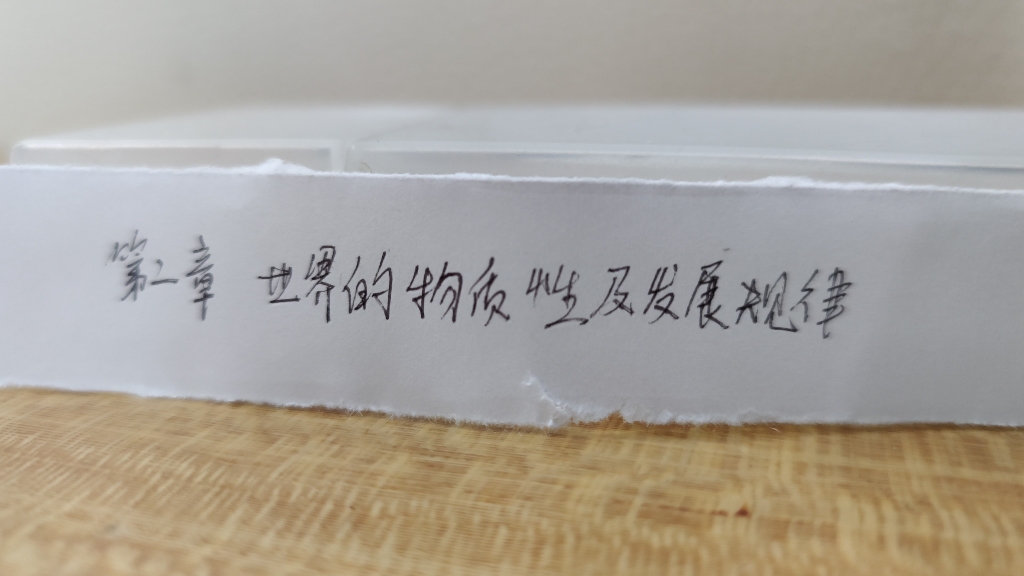 第二章 世界的物质性及发展规律